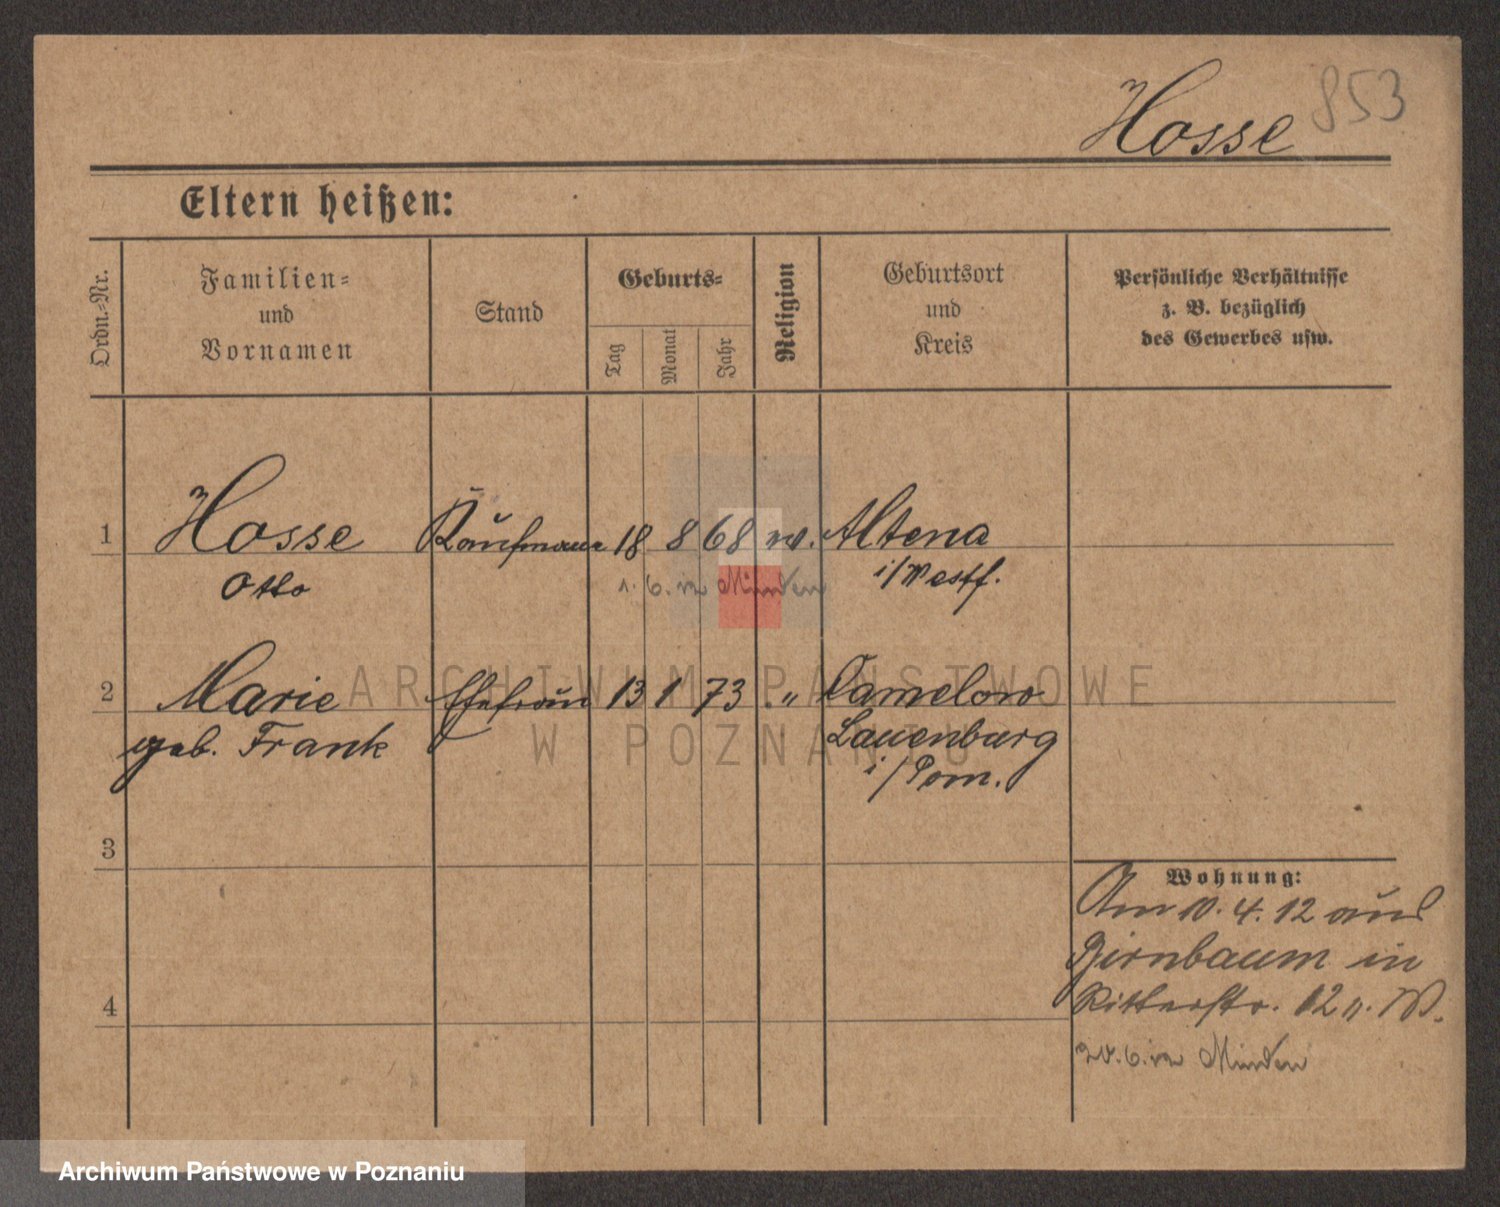 Hosse 853
Eltern heißen:
Ordn.-Nr.
Familien-
und
Vornamen
Stand
Geburts-
Tag
Monat
Jahr
Religion
Geburtsort
und
Kreis
Persönliche Verhältnisse
z. B. bezüglich
des Gewerbes usw.
1 Hosse Kaufmann 18 8 68 ev. Altena
Otto i/Westf.
1. 6. 12 Minden
2 Marie Ehefrau 13 1 73 " Camelow
geb. Frank Lauenburg
i/Pom.
3
Wohnung:
Am 10. 4. 12 aus
Birnbaum in
4 Ritterstr. 12
6. 12 Minden
ARCHIWUM PAŃSTWOWE
W POZNANIU
Archiwum Państwowe w Poznaniu